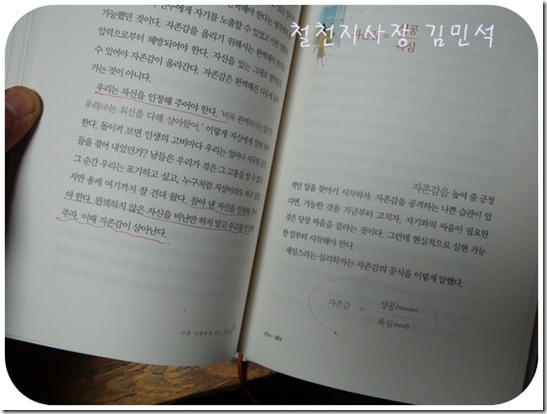 철천지사장 김민석
가능했던 것이다. 자존감을 올리기 위해서는 완벽해야 한다는
압력으로부터 해방되어야 한다. 자신을 있는 그대로
수 있어야 자존감이 올라간다. 자존감은 완벽해진 다음에
가는 것이 아니다.
우리는 자신을 인정해 주어야 한다. "비록 완벽하지는
우리나는 최선을 다해 살아왔어." 이렇게 자신에게 말해
한다. 돌이켜 보면 인생의 고비마다 우리는 얼마나 지독한
들을 겪어 내었던가? 남들은 우리가 겪은 그 고통을 알 수 없
그 순간 우리는 포기하고 싶고, 누구처럼 자살이라도 하고
지만 용케 여기까지 잘 견뎌 왔다. 참아 낸 자신을 인정해
야 한다. 완벽하지 않은 자신을 비난만 하지 말고 수고를 인정해
주자. 이때 자존감이 살아난다.
성공
욕심
자존감을 높여 줄 긍정
적인 일을 찾아서 시작하자. 자존감을 공격하는 나쁜 습관이 있
다면, 가능한 것을 지금부터 고치자. 자기와의 싸움이 필요한
것은 당찬 싸움을 걸라는 것이다. 그런데 현실적으로 실현 가능
한 일부터 시작해야 한다.
제임스라는 심리학자는 자존감의 공식을 이렇게 말했다.
성공(success)
자존감 =
욕심(need)